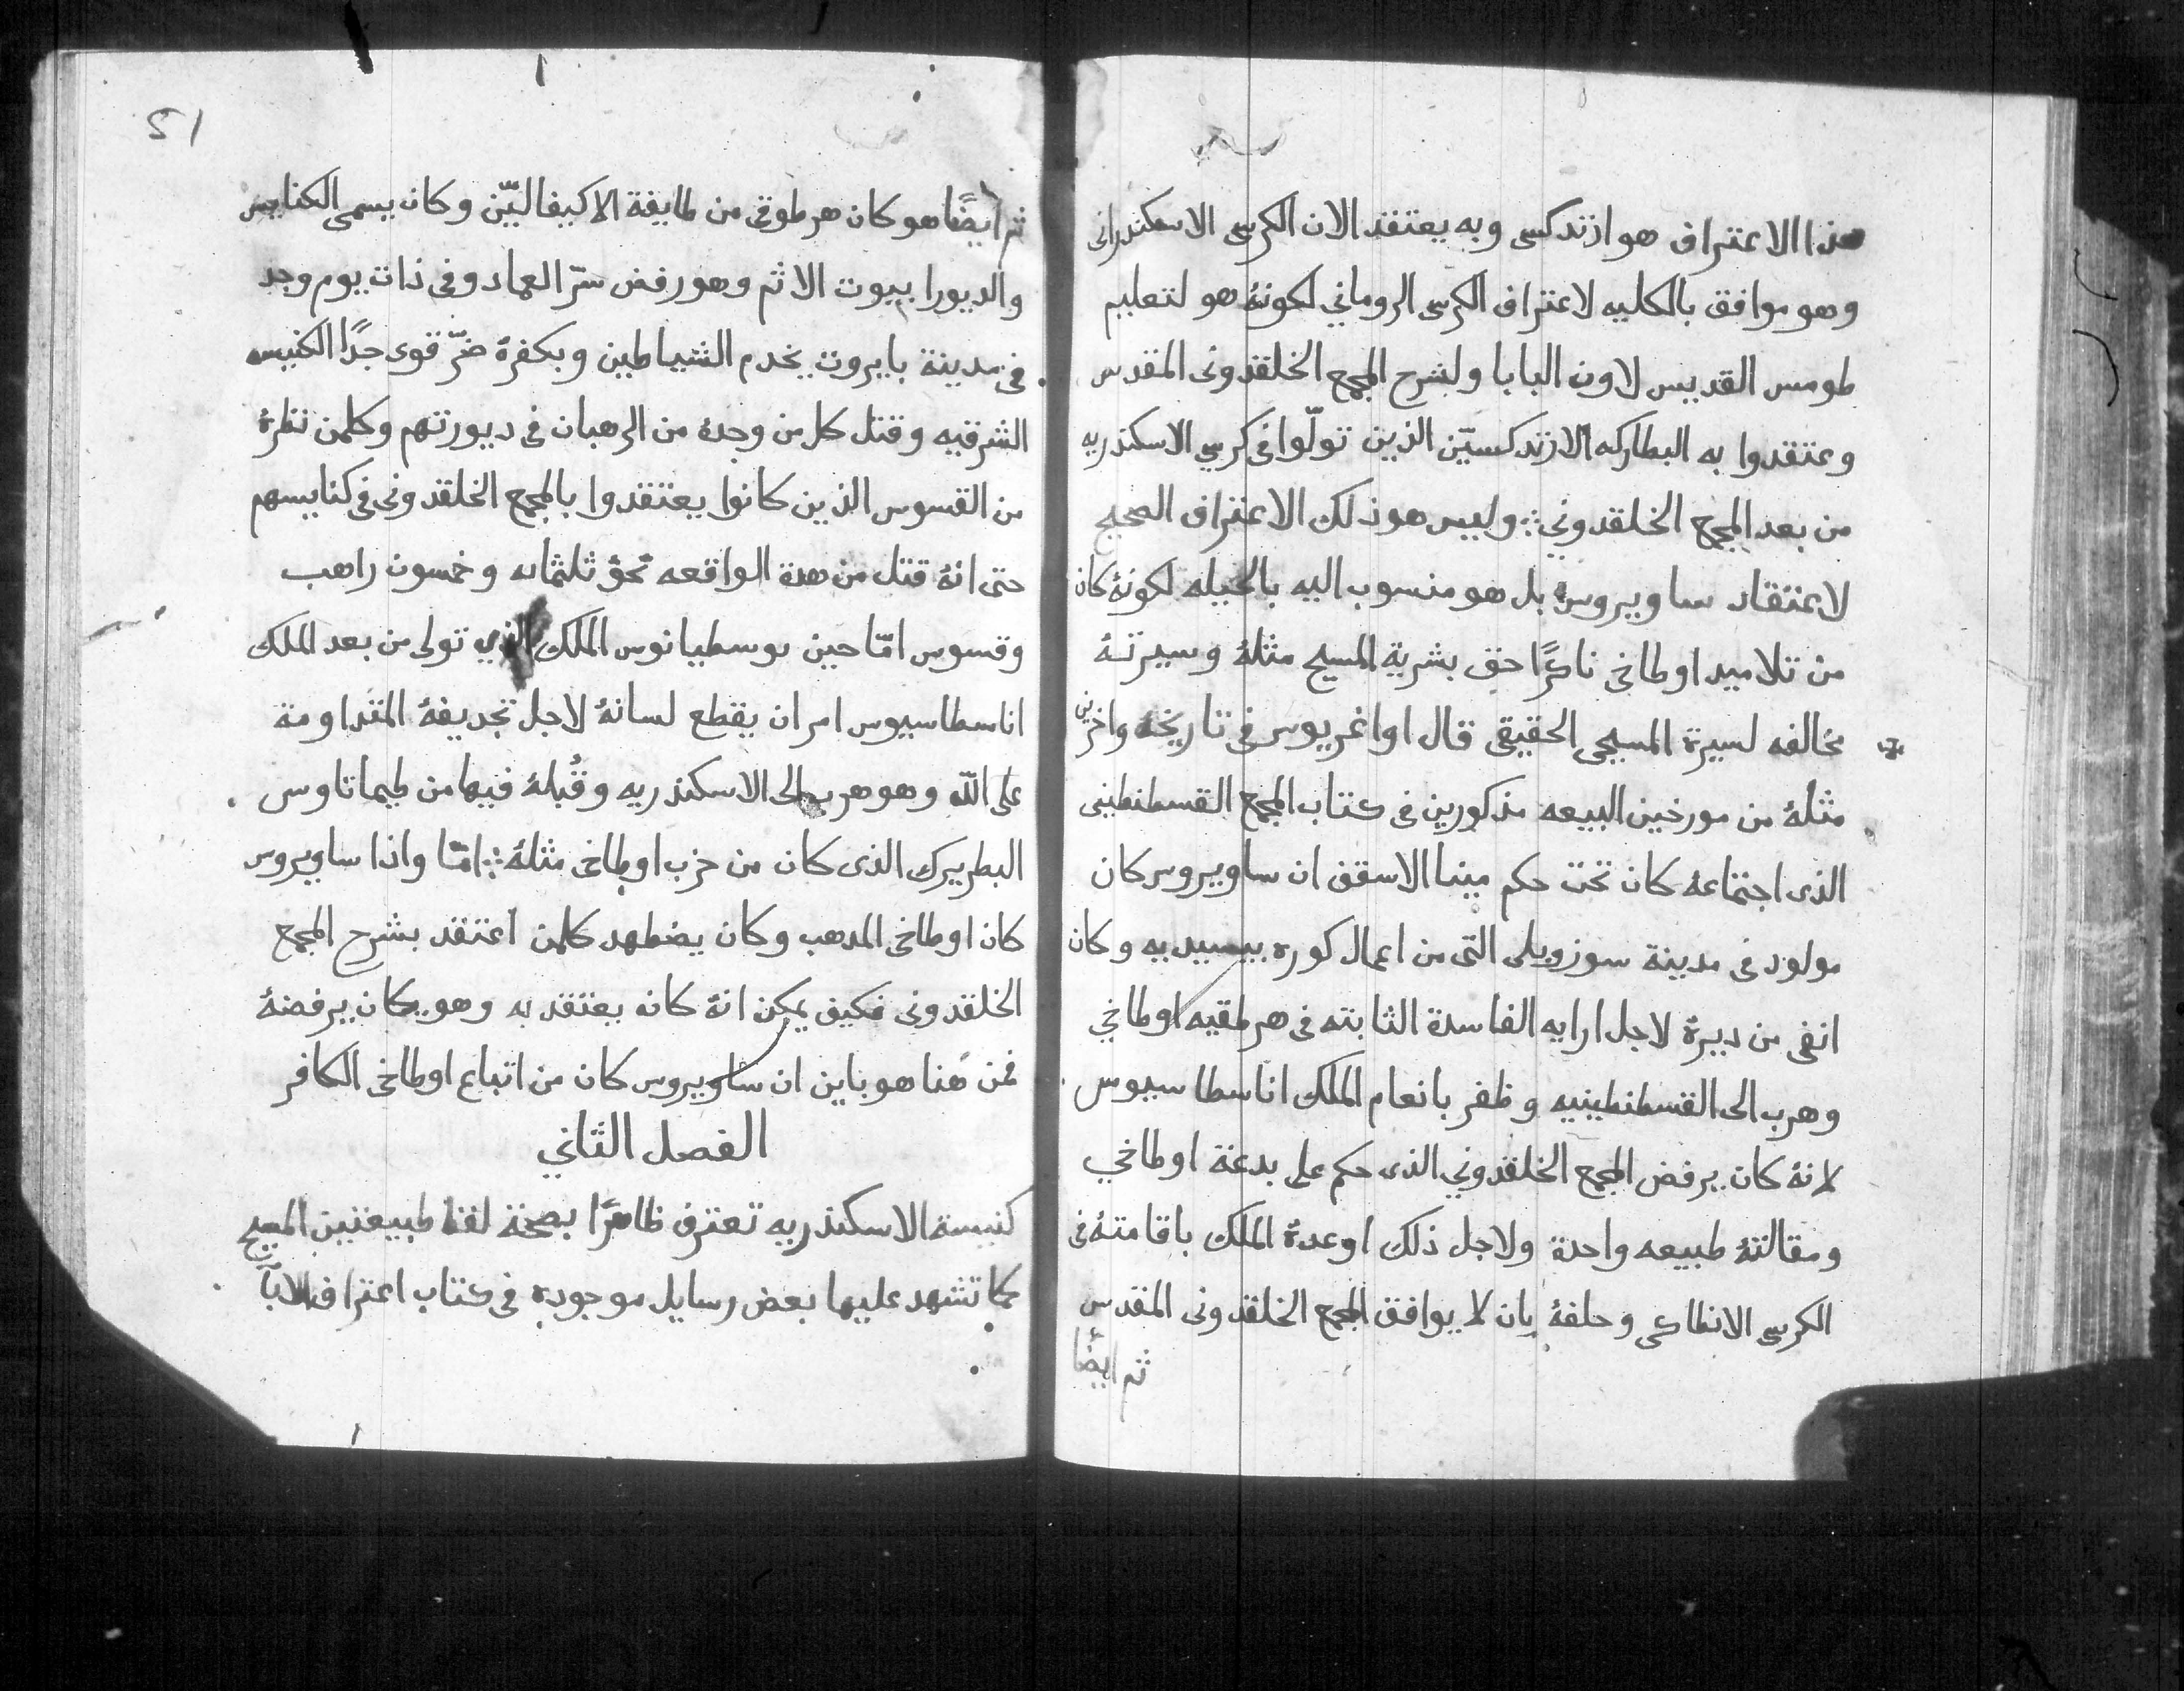 هذا الاعتراف هو ارتدكسى وبه يعتقد الان الكرسى الاسكندرانى
وهو موافق بالكليه لاعتراف الكرسى الرومانى لكونهُ هو لتعليم
طومس القديس لاون البابا ولشرح المجمع الخلقدونى المقدس
وعتقدوا به البطاركه الارتدكسيّن الذين تولّوا فى كرسي الاسكندريه
من بعد المجمع الخلقدوني ؞ وليس هو ذلك الاعتراف الصحيح
لاعتقاد ساويروس بل هو منسوب اليه بالحيله لكونهُ كان
من تلاميد اوطاخى ناكرًا حق بشرية المسيح مثلهُ وسيرتهُ
مخالفه لسيرة المسيحى الحقيقى قال اواغريوس فى تاريخهُ واخرين
مثلهُ من مورخين البيعه مذكورين فى كتاب المجمع القسطنطينى
الذى اجتماعهُ كان تحت حكم مينا الاسقف ان ساويروس كان
مولود فى مدينة سوزوپلى التى من اعمال كوره بيسيديه وكان
انفى من ديرهُ لاجل ارايه الفاسدة الثابته فى هرطقيه اوطاخي
وهرب الى القسطنطينيه وظفر بانعام الملك اناسطاسيوس
لانهُ كان يرفض المجمع الخلقدوني الذى حكم على بدعة اوطاخي
ومقالتهُ طبيعه واحدة ولاجل ذلك اوعدهُ الملك باقامتهُ فى
الكرسى الانطاكى وحلفهُ بان لا يوافق المجمع الخلقدونى المقدس
ثم ايضًا
51
ثم ايضًا هو كان هرطوقى من طايفة الاكيفاليّن وكان يسمى الكنايس
والديورا بيوت الاثم وهو رفض سرّ العماد وفى ذات يوم وجد
فى مدينة بايروت يخدم الشياطين وبكفرهُ ضرّ قوى جدًا الكنيسه
الشرقيه وقتل كل من وجدهُ من الرهبان فى ديورتهم وكلمن نظرهُ
من القسوس الذين كانوا يعتقدوا بالمجمع الخلقدونى فى كنايسهم
حتى انهُ قتل من هدة الواقعه نحو ثلثمايه وخمسون راهب
وقسوس امّا حين يوسطيانوس الملك الذي تولى من بعد الملك
اناسطاسيوس امر ان يقطع لسانهُ لاجل تجديفهُ المتداومة
على اللّه وهو هرب الى الاسكندريه وقُبلهُ فيها من طيماتاوس
البطريرك الذى كان من حزب اوطاخى مثلهُ ؞ امّا واذا ساويروس
كان اوطاخى المدهب وكان يضطهد كلمن اعتقد بشرح المجمع
الخلقدونى فكيف يمكن انهُ كان يعتقد به وهو كان يرفضهُ
فمن هنا هو باين ان ساويروس كان من اتباع اوطاخى الكافر
الفصل الثاني
كنيسة الاسكندريه تعترف ظاهرًا بصحّة لفظ طبيعتين المسيح
كما تشهد عليها بعض رسايل موجوده فى كتاب اعتراف الابآ